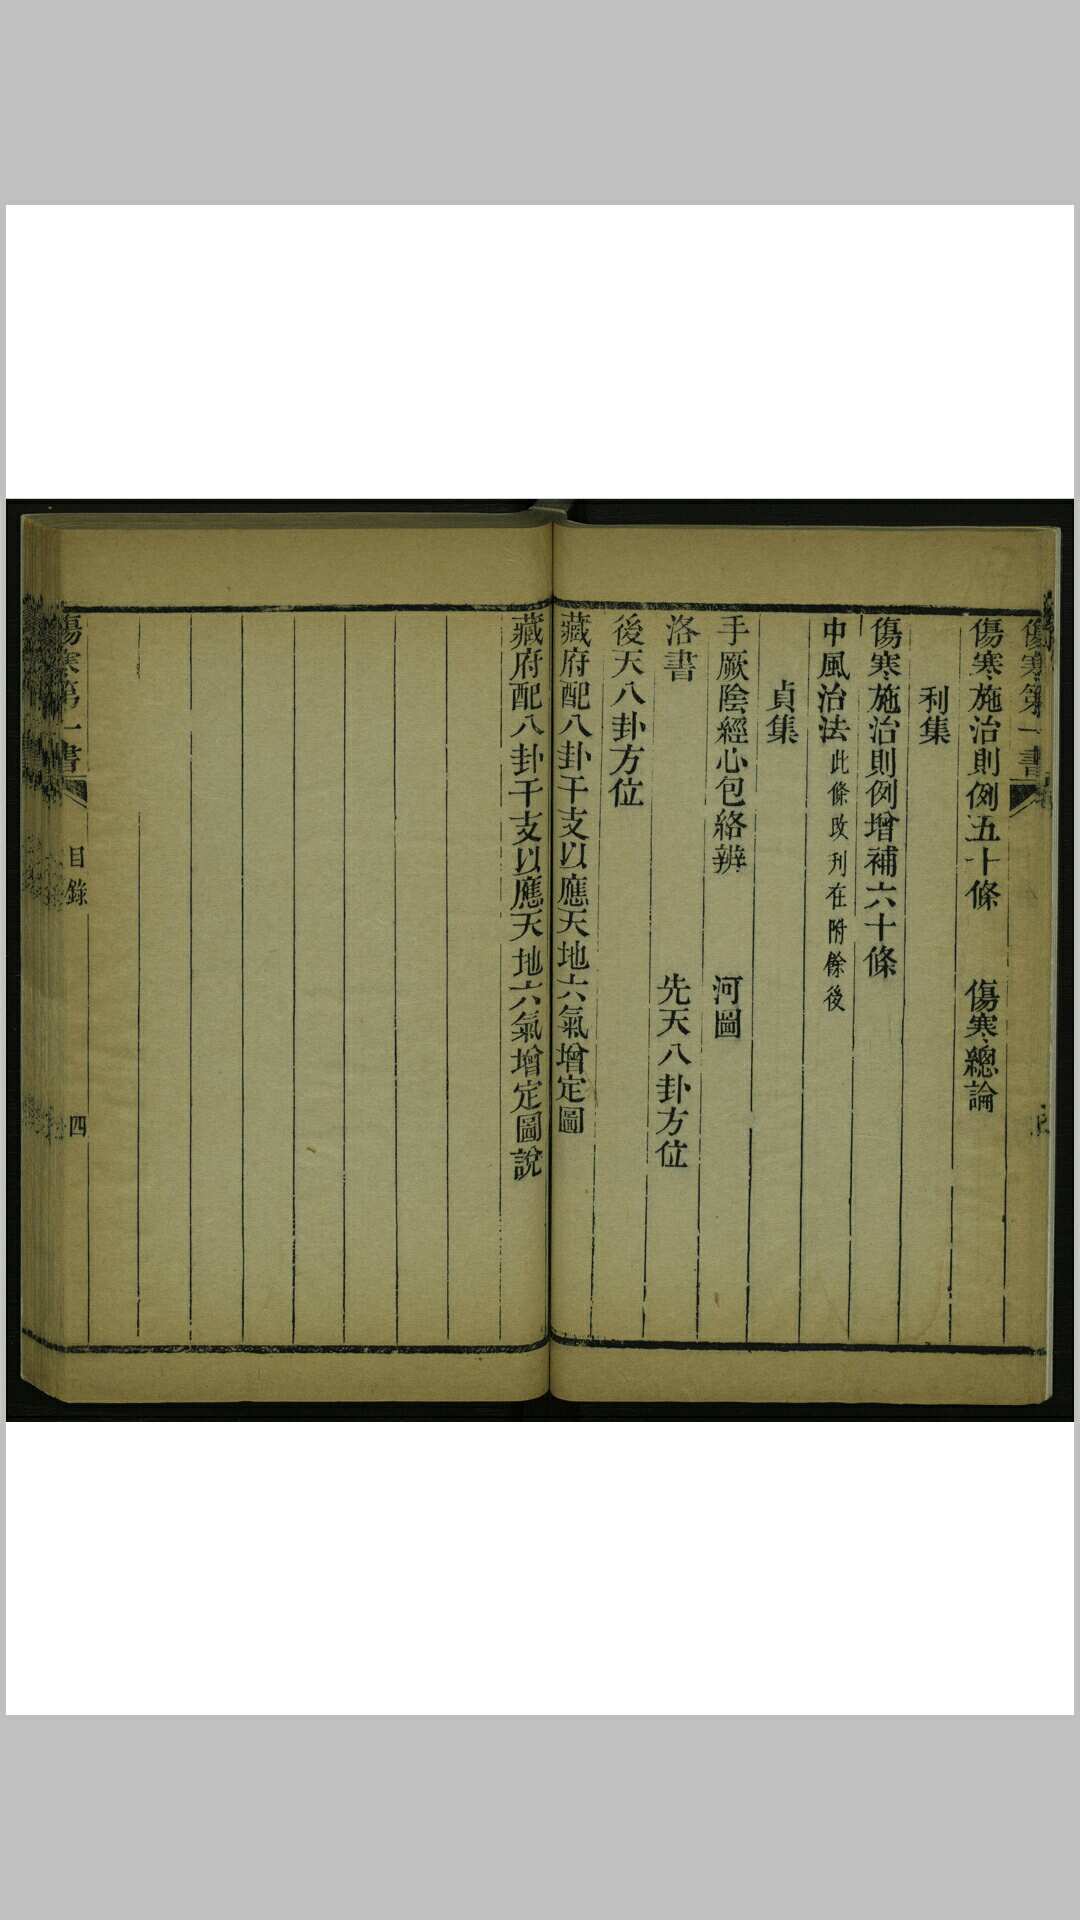 傷寒第一書
傷寒施治則例五十條　傷寒總論
利集
傷寒施治則例增補六十條
中風治法此條改刊在附餘後
貞集
手厥陰經心包絡辨　河圖
洛書　先天八卦方位
後天八卦方位
藏府配八卦干支以應天地六氣增定圖
藏府配八卦干支以應天地六氣增定圖說
傷寒第一書　目錄　四